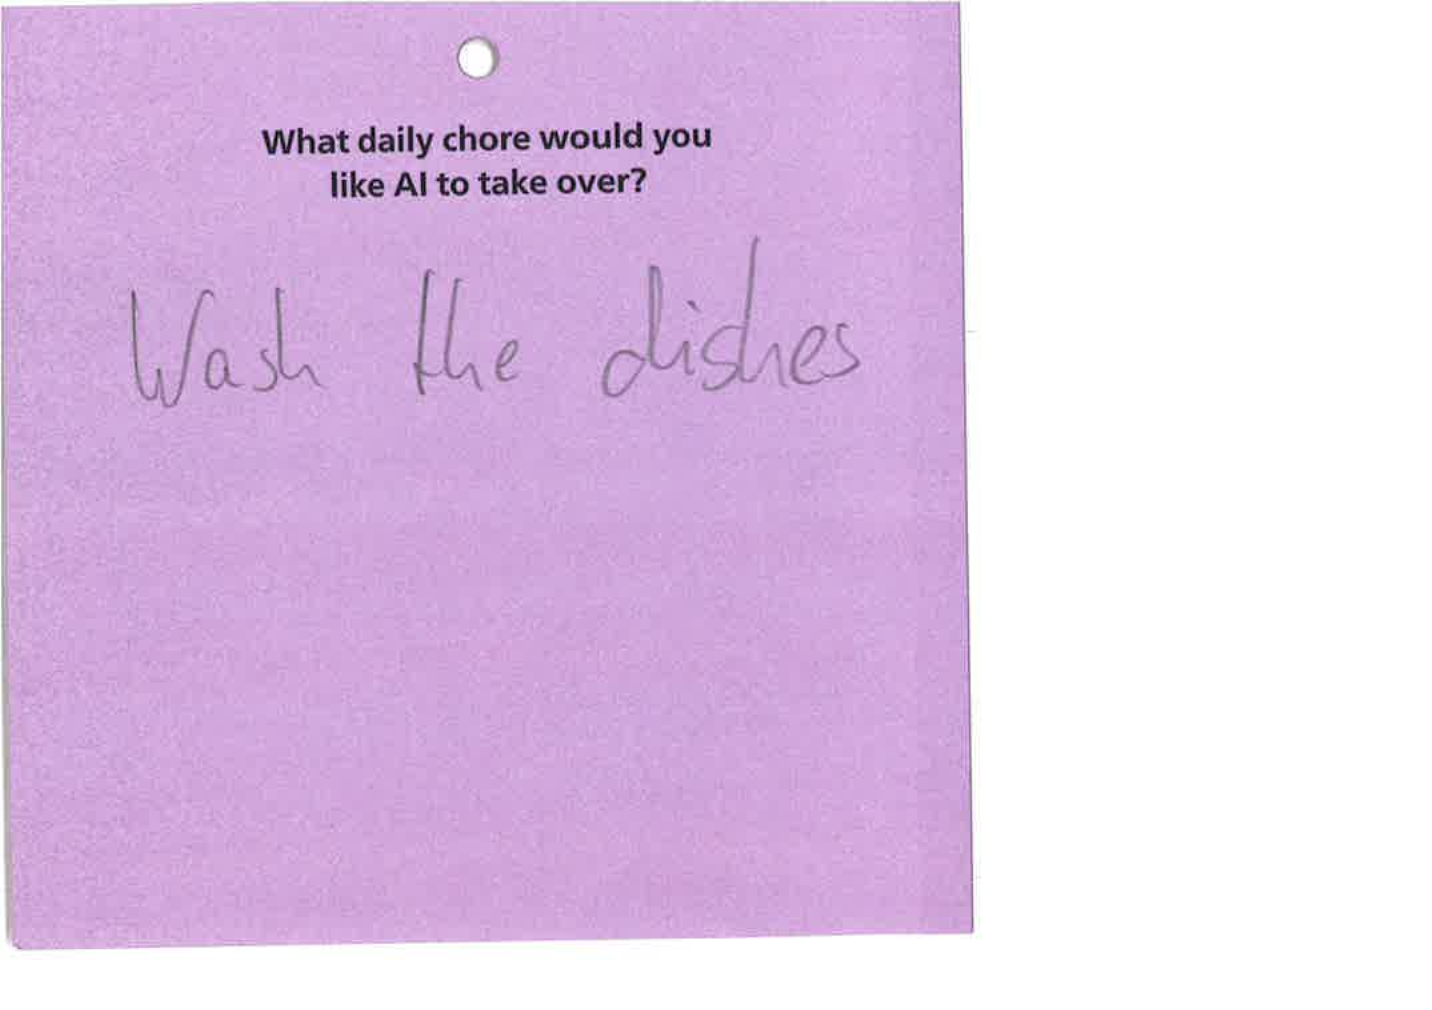 What daily chore would you
like AI to take over?
Wash the dishes